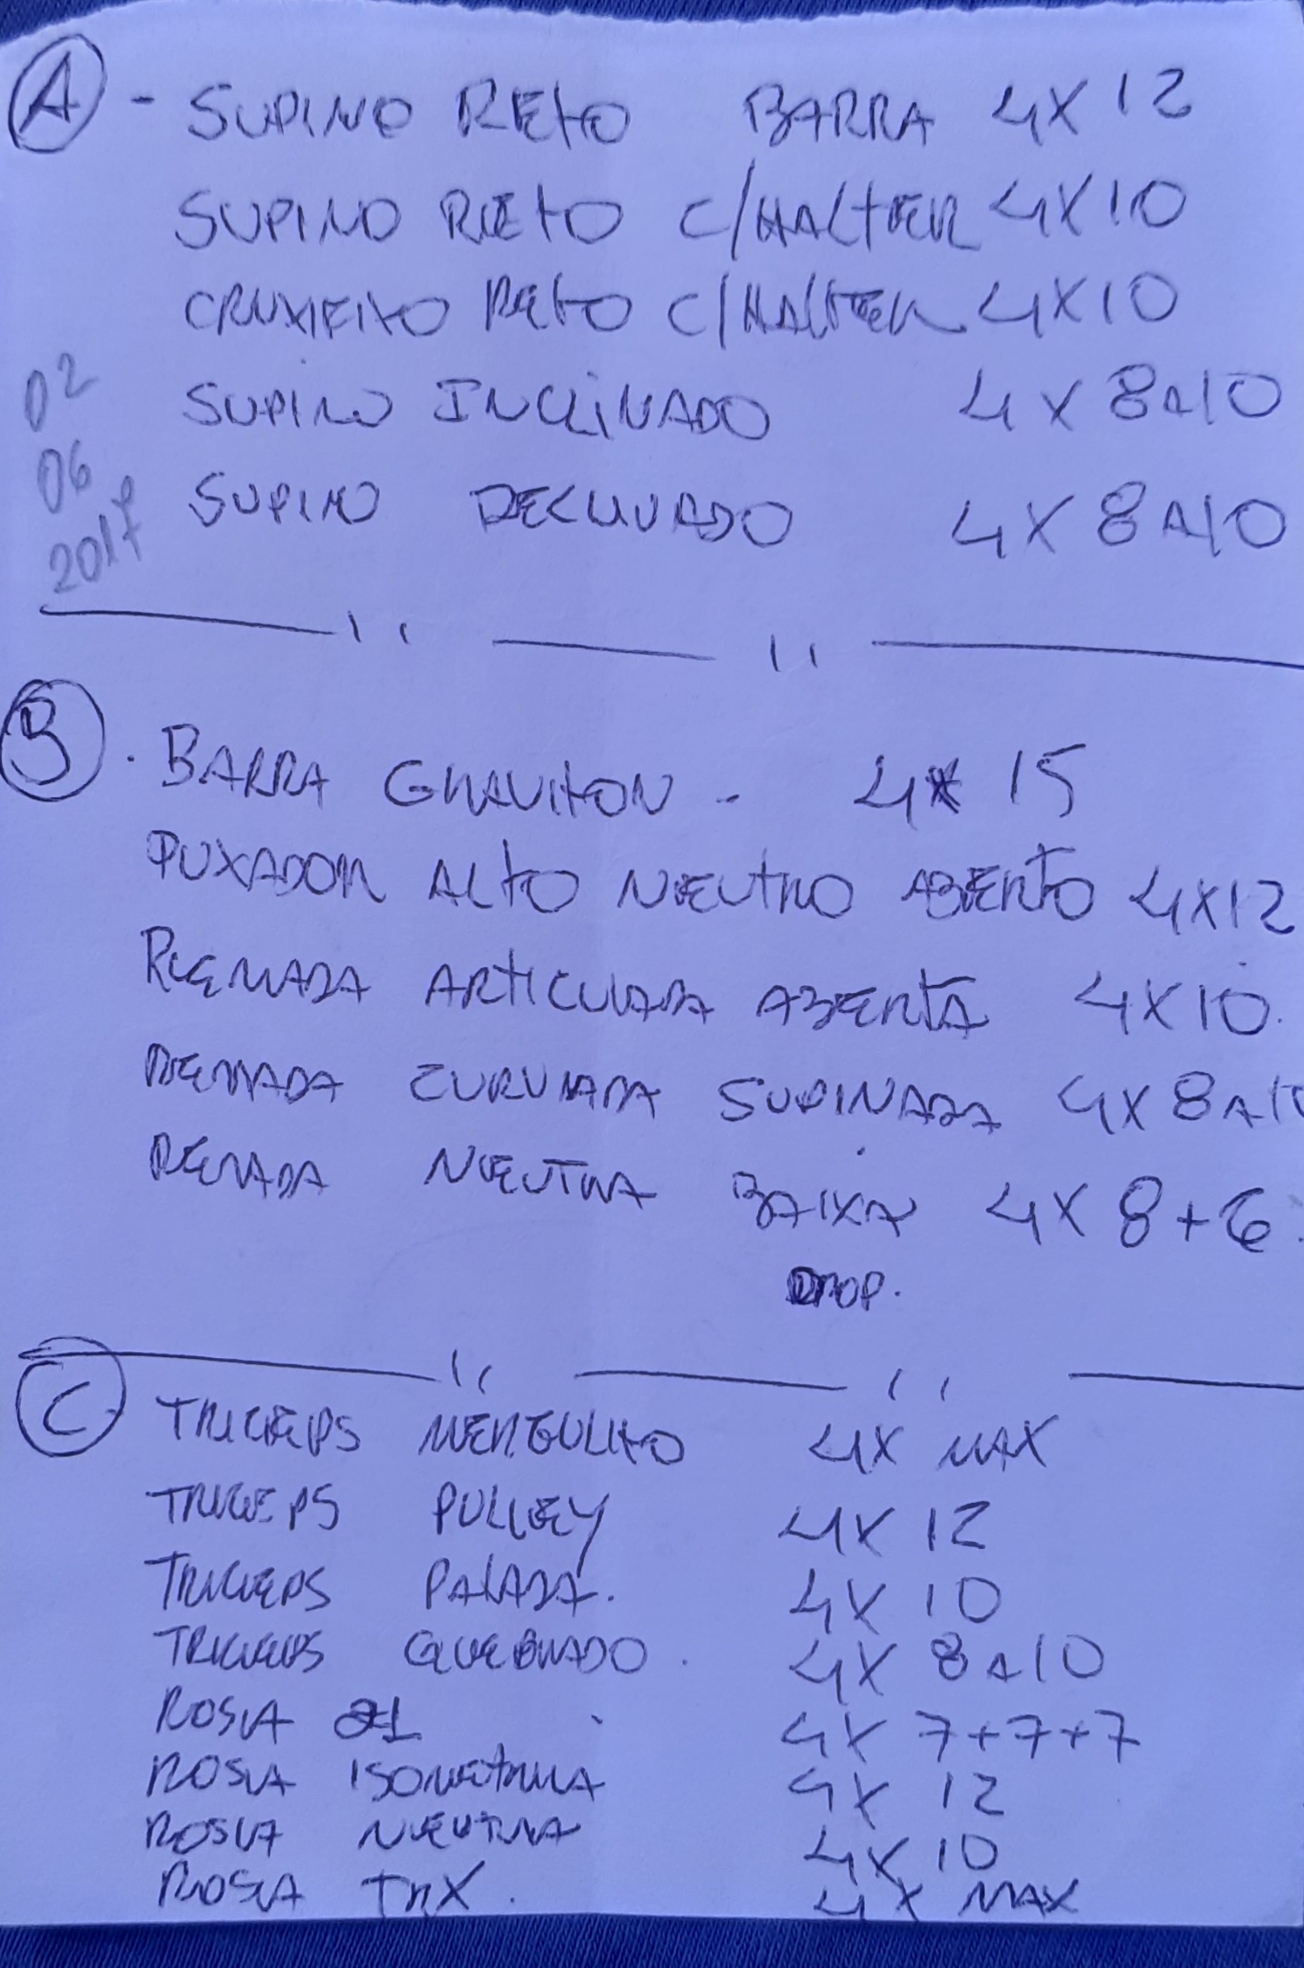 A - SUPINO RETO BARRA 4X12
SUPINO RETO C/HALTER 4X10
CRUXIFIXO RETO C/HALTER 4X10
SUPINO INCLINADO 4X8A10
SUPINO DECLIVADO 4X8A10
02
06
2017
B. BARRA GRAVITON - 4X15
PUXADOR ALTO NEUTRO ABERTO 4X12
REMADA ARTICULADA ABERTA 4X10.
REMADA CURVADA SUPINADA 4X8A10
REMADA NEUTRA BAIXA 4X8+6
DROP.
C TRICEPS MERGULHO 4X MAX
TRICEPS PULLEY 4X12
TRICEPS PATADA. 4X10
TRICEPS QUEBRADO. 4X8A10
ROSCA 21 4X7+7+7
ROSCA ISOMETRICA 4X12
ROSCA NEUTRA 4X10
ROSCA TRX. 4X MAX